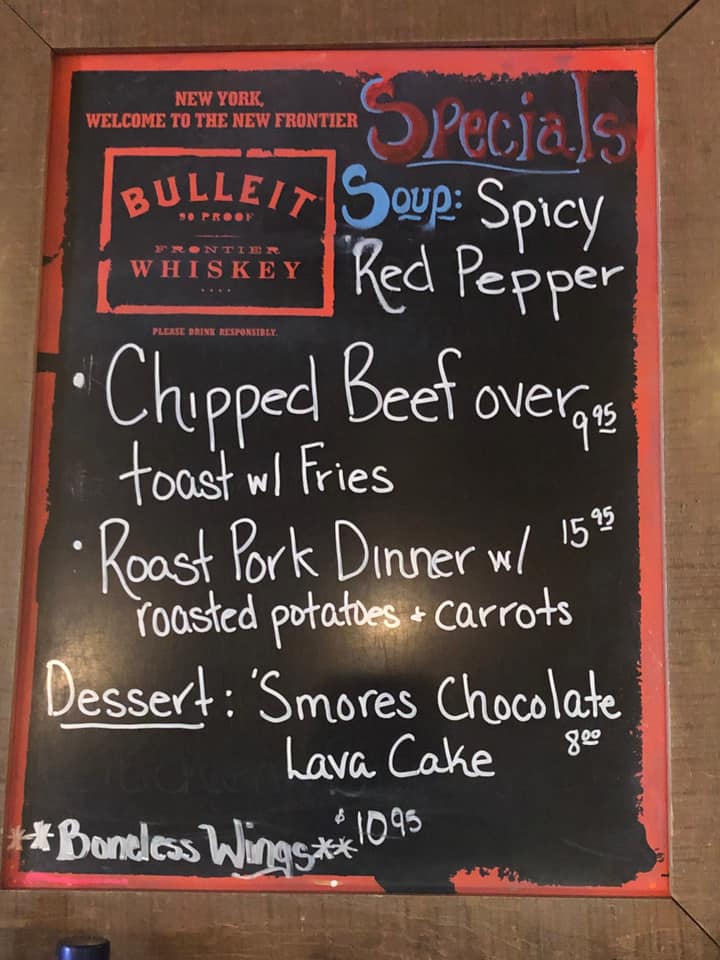 NEW YORK,
WELCOME TO THE NEW FRONTIER
Specials
BULLEIT
90 PROOF
FRONTIER
WHISKEY
PLEASE DRINK RESPONSIBLY.
Soup: Spicy
Red Pepper
• Chipped Beef over 9.95
toast w/ Fries
• Roast Pork Dinner w/ 15.95
roasted potatoes + carrots
Dessert: 'Smores Chocolate
Lava Cake 8.00
**Boneless Wings** $10.95